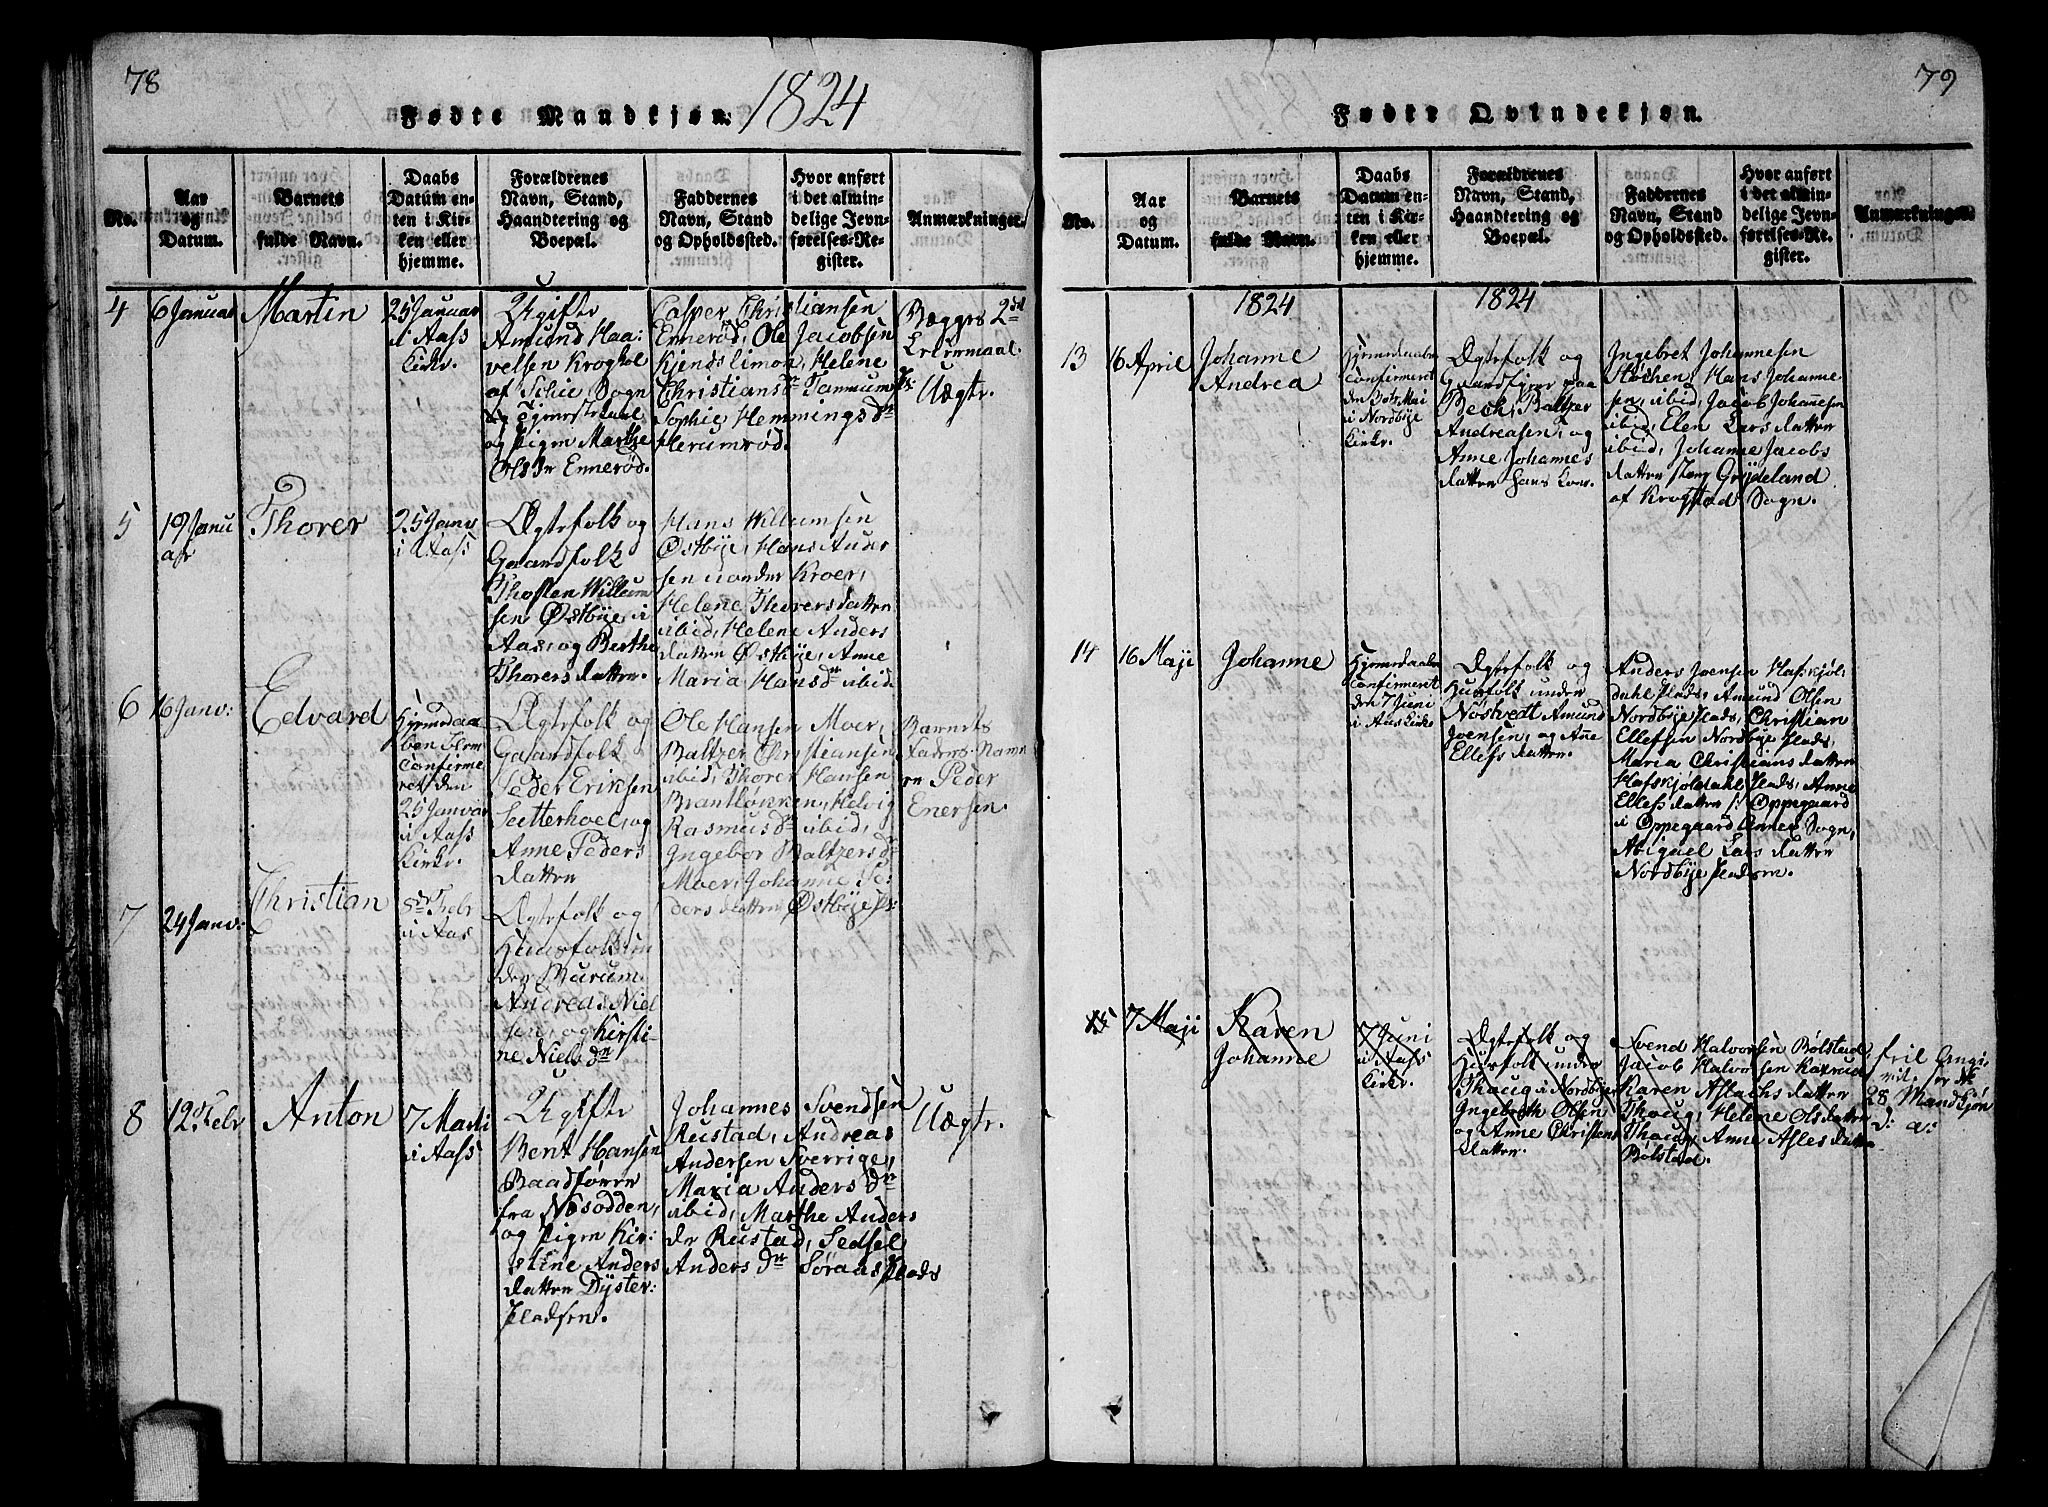 78
Fødte Mandkjøn. 1824
No.
Aar
og
Datum.
Barnets
fulde Navn.
Daabs
Datum en-
ten i Kir-
ken eller
hjemme.
Forældrenes
Navn, Stand,
Haandtering og
Boepæl.
Faddernes
Navn, Stand
og Opholdssted.
Hvor anført
i det almin-
delige Jevn-
førelses-Re-
gister.
Anmærkninger.
4
6 Januar
Martin
25 Januar
i Aass
Kirke.
Ugifte
Amund Haa:
velsen Kroghol
af Schie Sogn
og Pigen Marthe
Ols Dr Ennerød.
Casper Christiansen
Ennerød, Ole Jacobsen
Kjendslimon, Helene
Christians Dr Tammum
Sophie Hemmings Dr
Herumrød.
Begges 2det
Leiermaal.
Uægte.
5
19 Janu
ar
Thorer
25 Janv
i Aass
Ægtefolk og
Gaardfolk
Thosten Willum
sen Østbye i
Aas, og Berthe
Thorers datter.
Hans Willumsen
Østbye, Hans Ander
sen under Kroer,
Helene Thorers datter
ibid, Helene Anders
datter Østbye, Anne
Maria Hans Dr ibid
6
16 Janv:
Edvard
Hjemedaa
ben
Confirme
ret den
25 Janvar
i Aass
Kirke.
Ægtefolk og
Gaardfolk
Peder Eriksen
Setterhoel, og
Anne Peders
datter
Ole Hansen Moer,
Baltzer Christiansen
ibid, Thorer Hansen
Brantløkken, Helvig
Rasmus Dr ibid,
Ingebor Baltzers Dr
Moer, Johanne Pe:
ders datter Østbye
Barnets
Faders Navn
er Peder
Enersen.
7
24 Janv:
Christian
8de Febr
i Aas
Ægtefolk og
Huusfolk un
der Burum
Andreas Niel
sen, og Kirsti-
ne Niels Dr
8
12 Febr
Anton
7 Marti
i Aass
Ugifte
Bent Hansen
Baadfører
fra Næsodden,
og Pigen Kir:
stine Anders
datter Dyster:
Pladsen.
Johannes Svendsen
Rustad, Andreas
Andersen Sverrige,
Maria Anders Dr
ibid, Marthe Anders
Dr Rustad, Sedsel
Anders Dr Søraas Plads
Uægte.
79
Fødte Qvindekjøn.
No.
Aar
og
Datum.
Barnets
fulde Navn.
Daabs
Datum en-
ten i Kir-
ken eller
hjemme.
Forældrenes
Navn, Stand,
Haandtering og
Boepæl.
Faddernes
Navn, Stand
og Opholdssted.
Hvor anført
i det almin-
delige Jevn-
førelses-Re-
gister.
Anmærkninger.
1824
1824
13
16 April
Johanne
Andrea
Hjemedaaben
Confirmeret
den Maj
i Nordbye
Kirke.
Ægtefolk og
Gaardfolk paa
Beck, Baltzer
Andreasen, og
Anne Johannes
datter hans Kone.
Ingebret Johannesen
Støchen, Hans Johanne-
sen, ibid, Jacob Johannesen
ibid, Elen Lars datter
ibid, Johanne Jacobs
datter Grydeland
af Krogstads Sogn.
14
16 Maji
Johanne
Hjemedaaben
Confirmeret
den 7 Juni
i Aas Kirke
Ægtefolk og
Huusfolk under
Nøstvedt Amund
Joensen, og Anne
Ellefs datter.
Anders Joensen Hafskjøl:
dahl Plads, Amund Olsen
Nordbye Plads, Christian
Ellefsen Nordbye Plads,
Maria Christians datter
Hafskjøldahl Plads, Anne
Ellefs datter Oppegaard
i Oppegaard Annex Sogn,
Abigael Lars datter
Nordbye Pladsen.
15
7 Maji
Karen
Johanne
7 Juni
i Aass
Kirke.
Ægtefolk og
Huusfolk under
Thaug i Nordbye
Ingebreth Olsen
og Anne Christens
datter.
Svend Halvorsen Bølstad,
Jacob Halvorsen
Karen Aslachs datter
Thaug, Helene Ols datter
Thaug, Anne Asles datter
Bølstad.
feil Angi:
vet. er No
28 Mandkjøn
D: a: